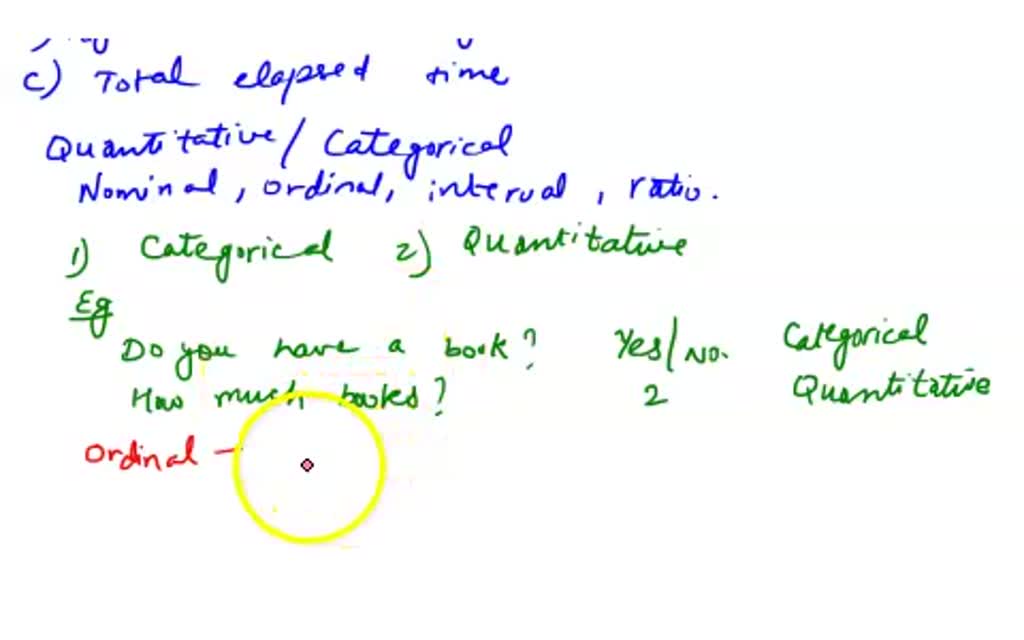 c) Total elapsed time
Quantitative / Categorical
Nominal, ordinal, interval, ratio.
1) Categorical 2) Quantitative
Eg
Do you have a book? Yes/No. Categorical
How much books? 2 Quantitative
Ordinal –